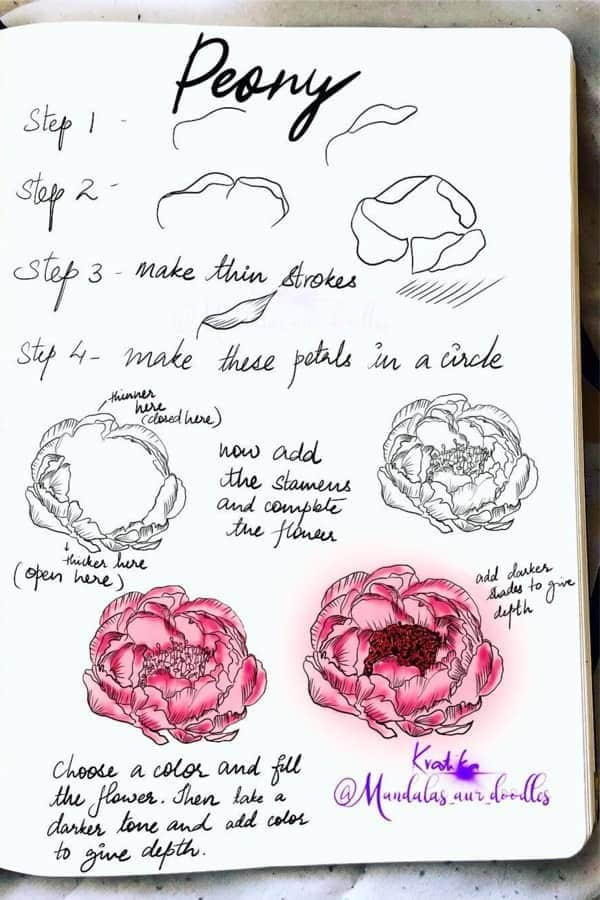 Peony
Step 1 -
Step 2 -
Step 3 - make thin strokes
Step 4 - make these petals in a circle
thinner
here
(closed here)
now add
the stamens
and complete
the flower
thicker here
(open here)
add darker
shades to give
depth
Choose a color and fill
the flower. Then take a
darker tone and add color
to give depth.
Kratika
@Mandalas_aur_doodles